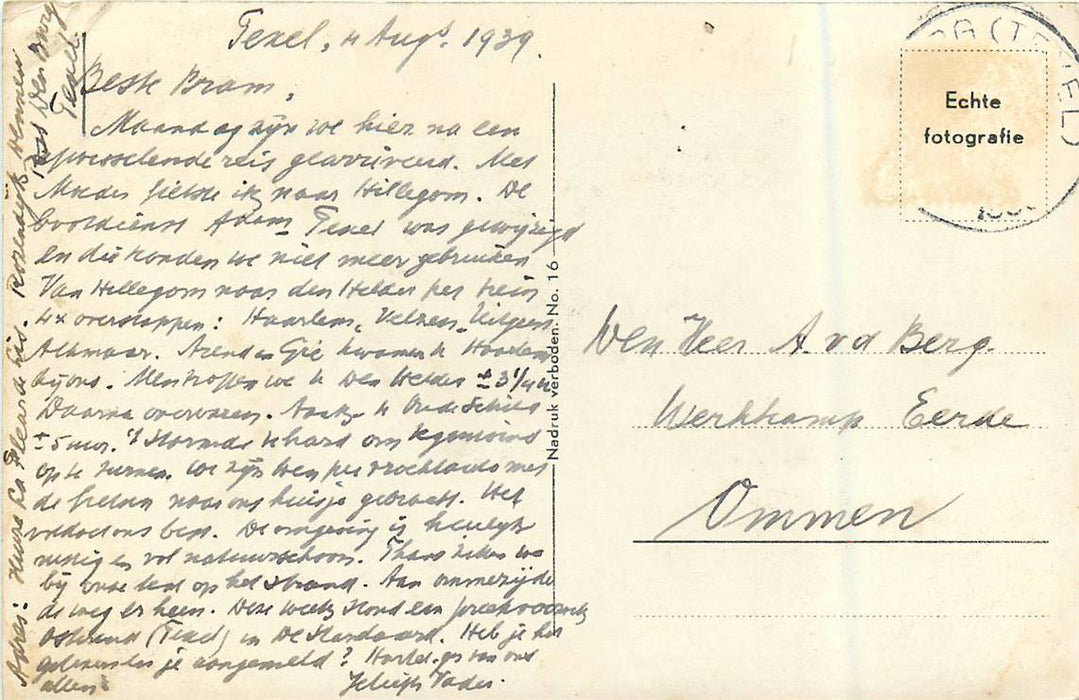 Texel, 4 Augs. 1939.
Beste Bram,
Maandag zijn we hier na een
wisselende reis gearriveerd. Met
Moeder fietste ik naar Hillegom. De
bootdienst Adam - Texel was gewijzigd
en die konden we niet meer gebruiken
Van Hillegom naar den Helder per trein
4x overstappen: Haarlem, Velzen, Uitgeest
Alkmaar. Arend en Gré kwamen te Haarlem
bij ons. Men troffen we te Den Helder ± 3 1/4 u
Daarna overvaren. Aank. te Oude Schild
± 5 uur. 't Stormde te hard om tegenwind
op te turnen. We zijn toen per vrachtauto met
de fietsen naar ons huisje gebracht. Het
voldoet ons best. De omgeving is heerlijk
rustig en vol natuurschoon. Thans zitten we
bij onze tent op het strand. Aan ommezijde
de weg er heen. Deze week stond een
(Texel) in De Standaard. Heb je het
gelezen en je aangemeld? Hartel. gr. van ons
allen
Vader.
Adres: Huize La Fleur de Lis. Rozendijk
Post Den Burg
Texel.
Nadruk verboden. No. 16
RG (TEXEL)
Echte
fotografie
Den Heer A. v d Berg.
Werkkamp Eerde
Ommen